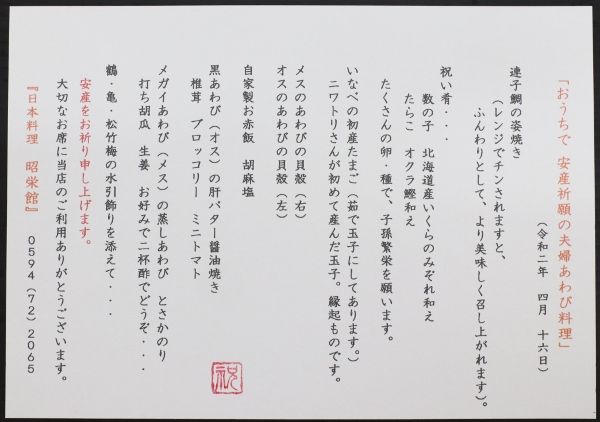 「おうちで 安産祈願の夫婦あわび料理」
(令和二年 四月 十六日)
連子鯛の姿焼き
(レンジでチンされますと、
ふんわりとして、より美味しく召し上がれます)。
祝い肴・・・・
数の子 北海道産いくらのみぞれ和え
たらこ オクラ鰹和え
たくさんの卵・種で、子孫繁栄を願います。
いなべの初産たまご(茹で玉子にしてあります。)
ニワトリさんが初めて産んだ玉子。縁起ものです。
メスのあわびの貝殻(右)
オスのあわびの貝殻(左)
自家製お赤飯 胡麻塩
黒あわび(オス)の肝バター醤油焼き
椎茸 ブロッコリー ミニトマト
メガイあわび(メス)の蒸しあわび とさかのり
打ち胡瓜 生姜 お好みで二杯酢でどうぞ・・・
鶴・亀・松竹梅の水引飾りを添えて・・・
安産をお祈り申し上げます。
大切なお席に当店のご利用ありがとうございます。
『日本料理 昭栄館』 0594(72)2065
祝